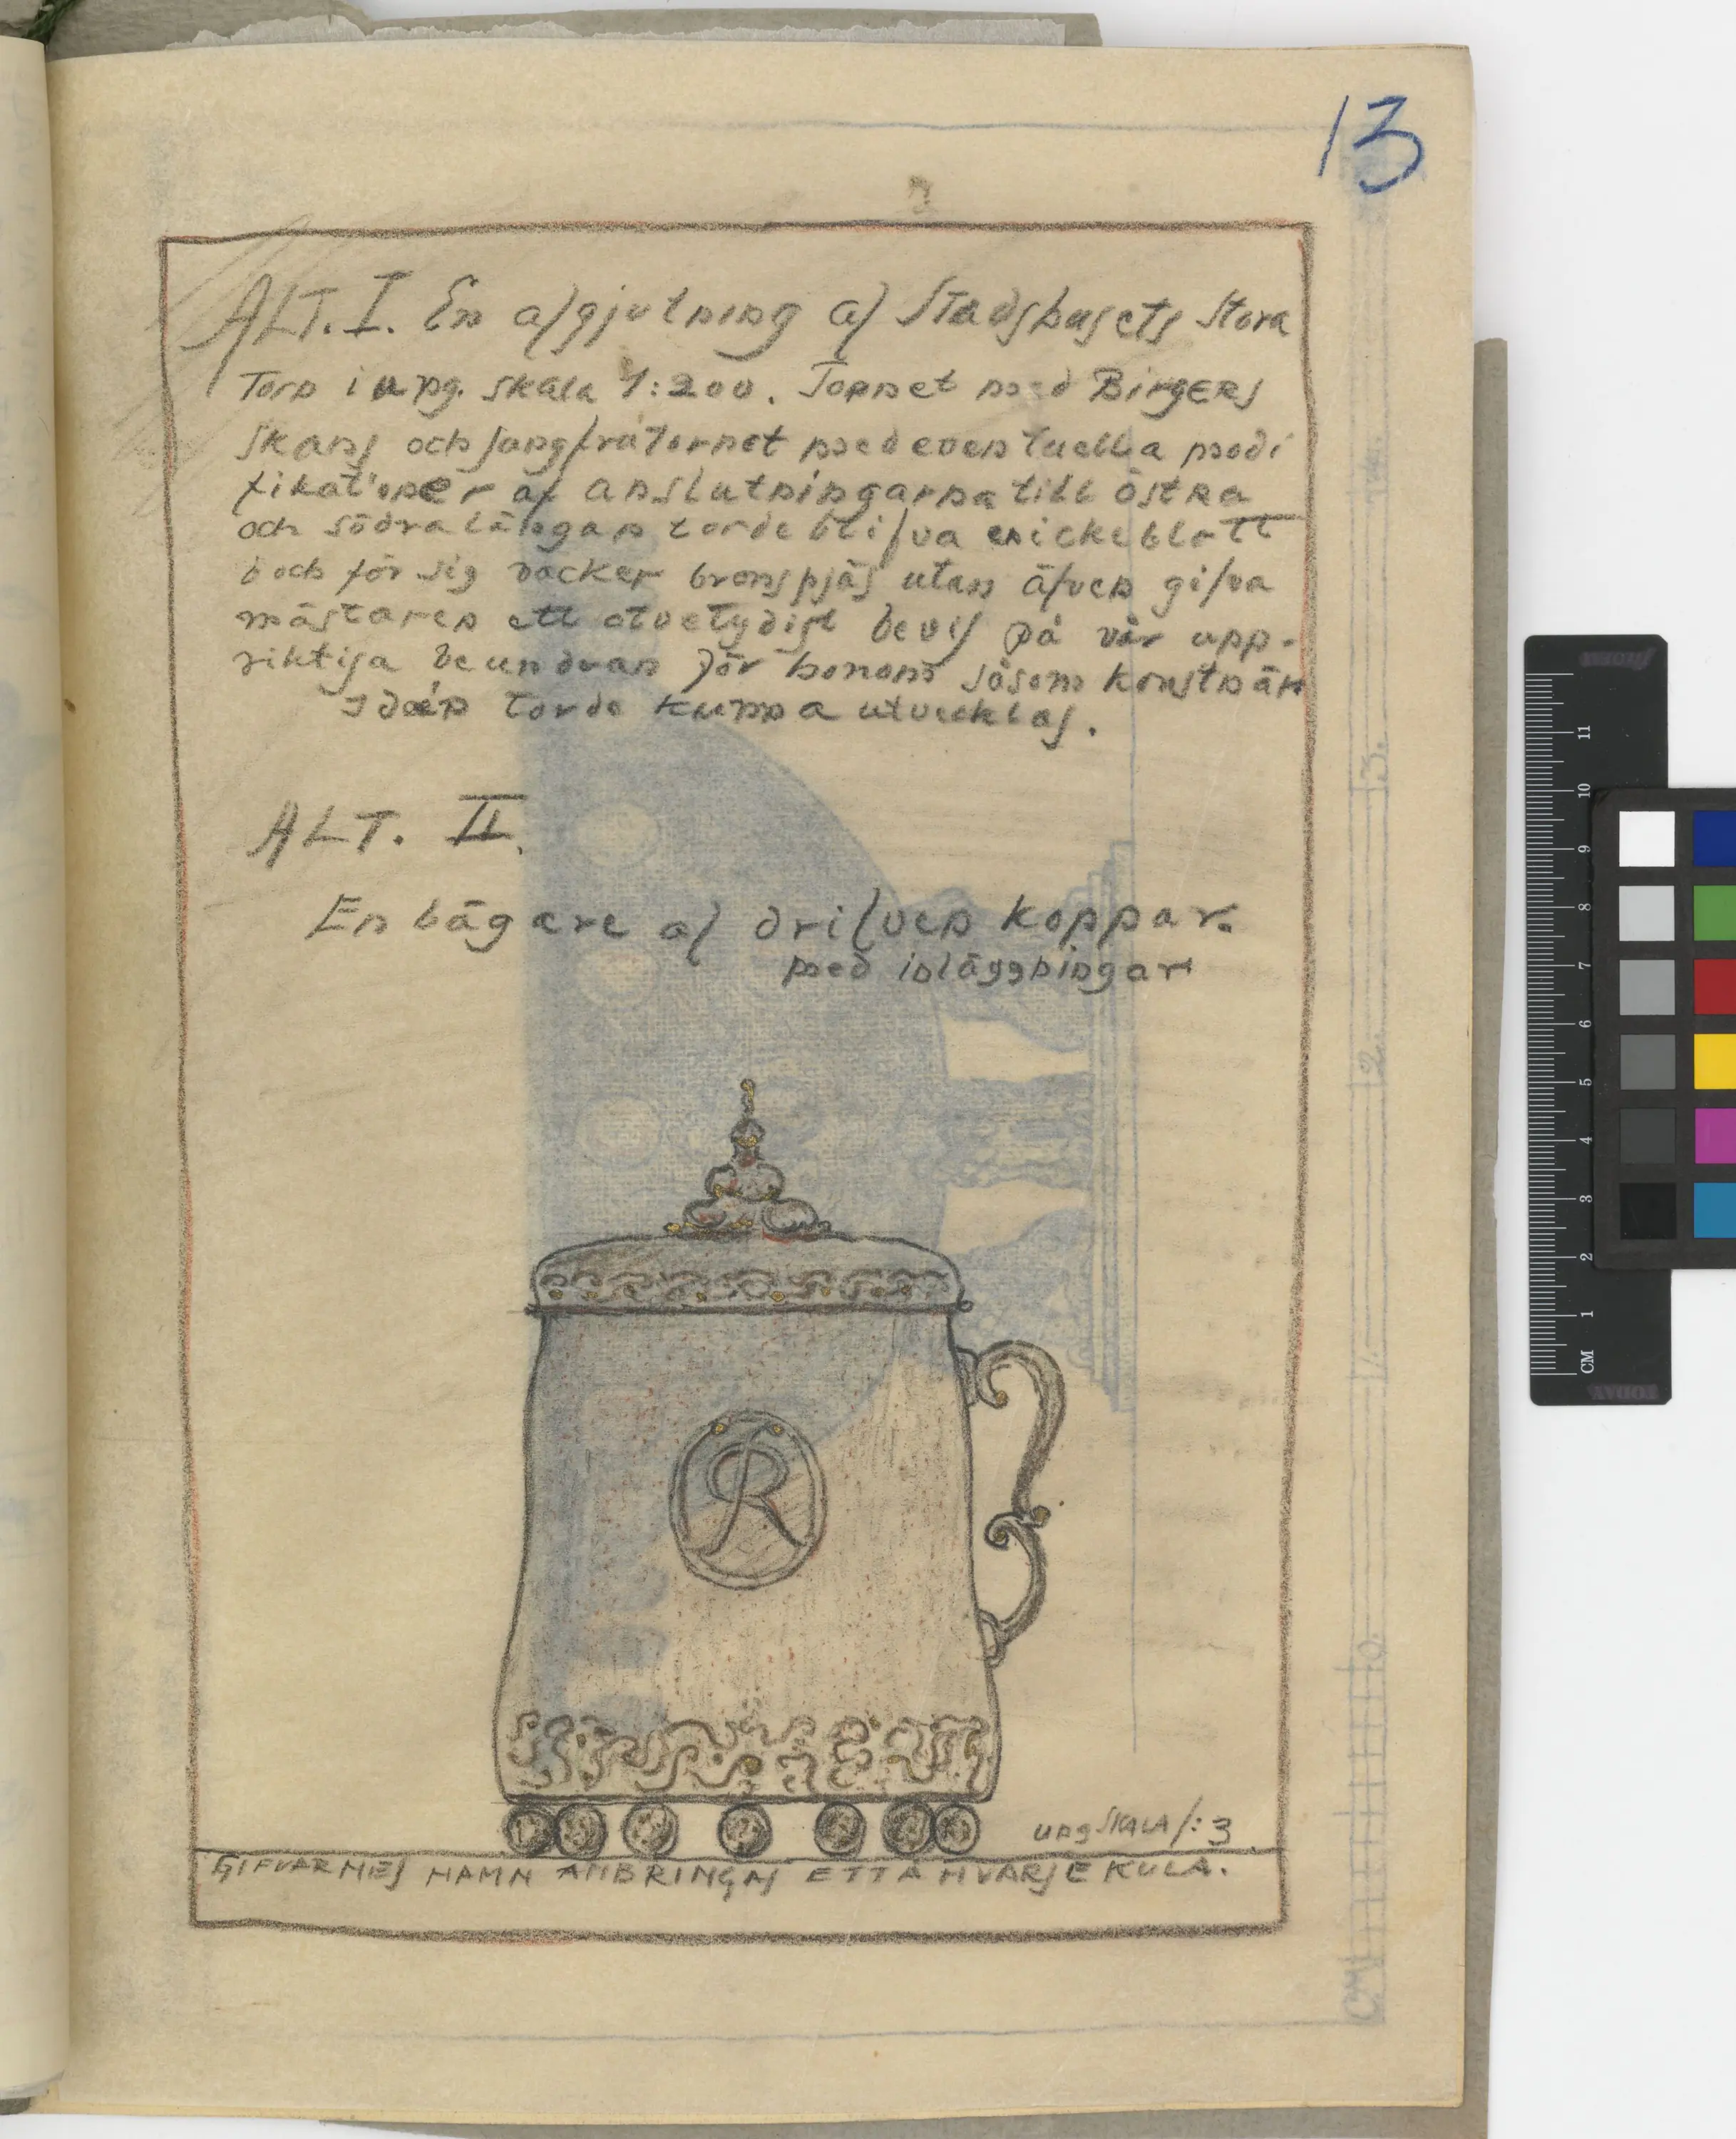 13
ALT. I. En afgjutning af Stadshusets Stora
Torn i ung. skala 1:200. Tornet med Birgers
skans och Jungfrutornet med eventuella modi
fikationer af anslutningarna till östra
och södra längan torde blifva en icke blott
i och för sig vacker bronspjäs utan äfven gifva
mästaren ett otvetydigt bevis på vår upp-
riktiga beundran för honom såsom konstnär
Idéen torde kunna utvecklas.
ALT. II.
En bägare af drifven koppar.
med inläggningar
R
ung SKALA 1:3
GIFVARNES NAMN ANBRINGAS ETT Å HVARJE KULA.